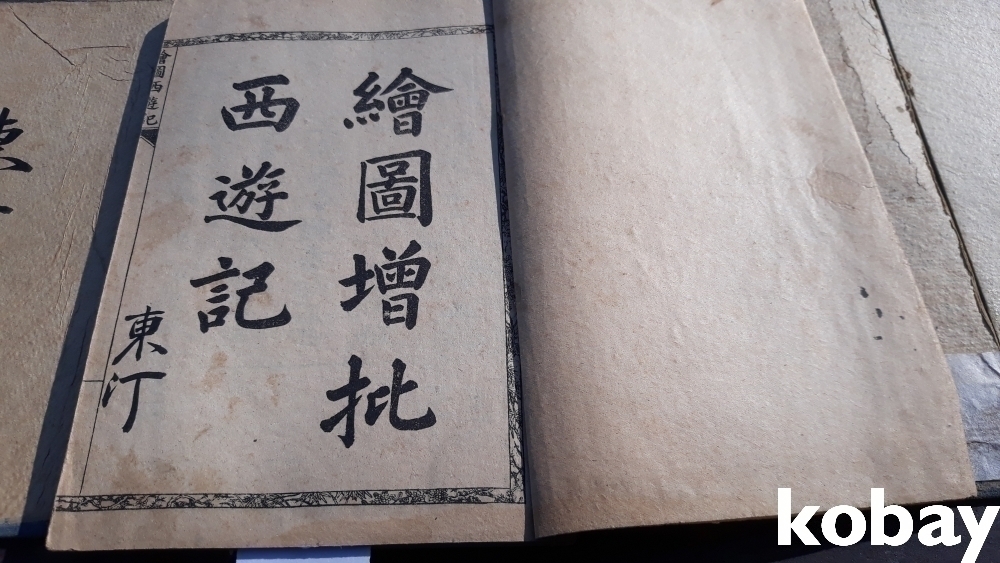 繪圖增批
西遊記
東汀
繪圖西遊記
kobay